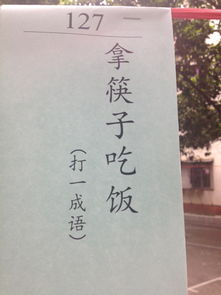 127
拿筷子吃饭
(打一成语)